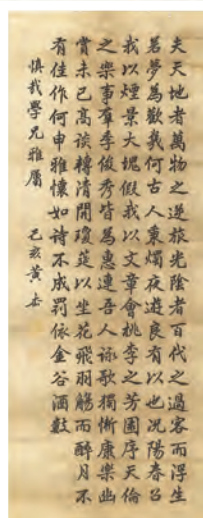 夫天地者萬物之逆旅光陰者百代之過客而浮生
若夢為歡幾何古人秉燭夜遊良有以也況陽春召
我以煙景大塊假我以文章會桃李之芳園序天倫
之樂事羣季俊秀皆為惠連吾人詠歌獨慚康樂幽
賞未已高談轉清開瓊筵以坐花飛羽觴而醉月不
有佳作何申雅懷如詩不成罰依金谷酒數
慎哉學兄雅屬 己亥黃